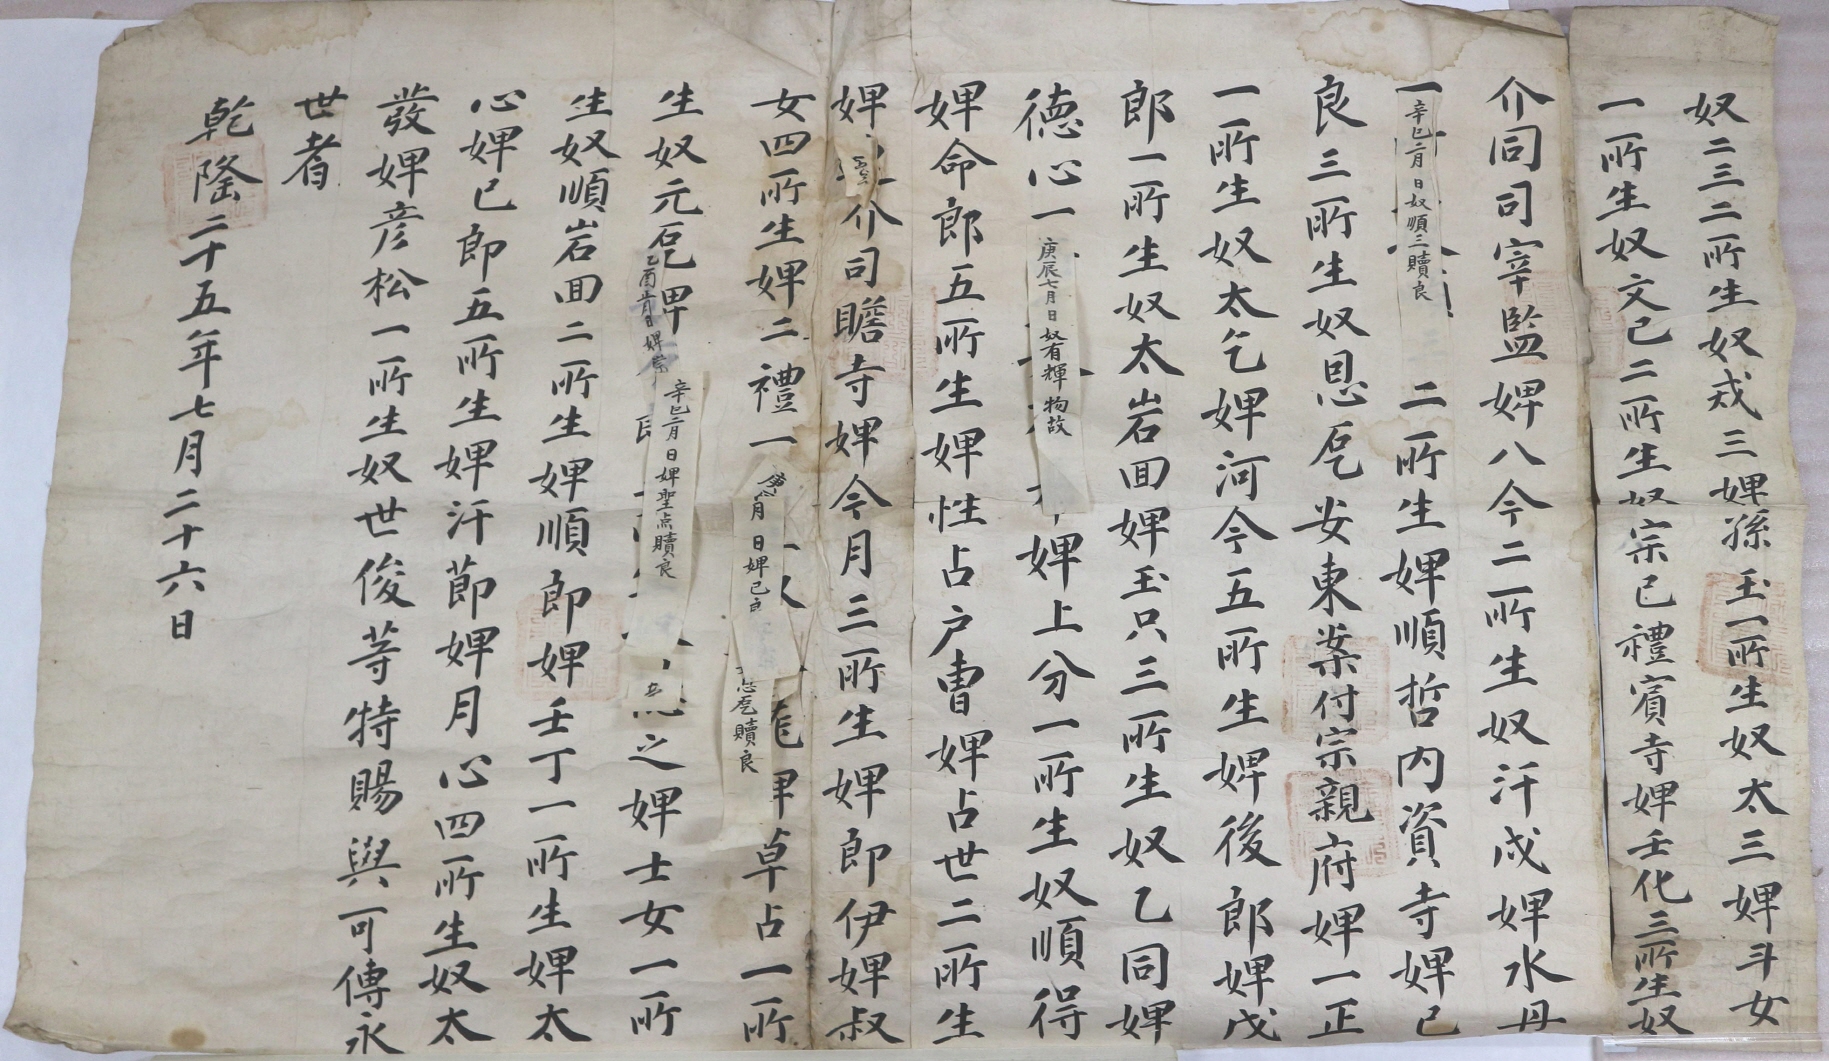 奴二三二所生奴戎三婢孫玉一所生奴太三婢斗女
一所生奴文已二所生奴宗已禮賓寺婢壬化三所生奴
介同司宰監婢八今二所生奴汗成婢水丹
一
辛巳二月日奴順三贖良
二所生婢順哲內資寺婢已
良三所生奴恩巵安東案付宗親府婢一正
一所生奴太乞婢河今五所生婢後郎婢戊
郎一所生奴太岩回婢玉只三所生奴乙同婢
德心一
庚辰七月日奴有輝物故
婢上分一所生奴順得
婢命郎五所生婢性占戶曹婢占世二所生
婢
介司贍寺婢今月三所生婢郎伊婢叔
女四所生婢二禮一
月日婢已
巵贖良
草占一所
生奴元巵婢
辛巳二月日婢聖占贖良
之婢士女一所
生奴順岩回二所生婢順郎婢壬丁一所生婢太
心婢已郎五所生婢汗節婢月心四所生奴太
發婢彦松一所生奴世俊等特賜與可傳永
世者
乾隆二十五年七月二十六日